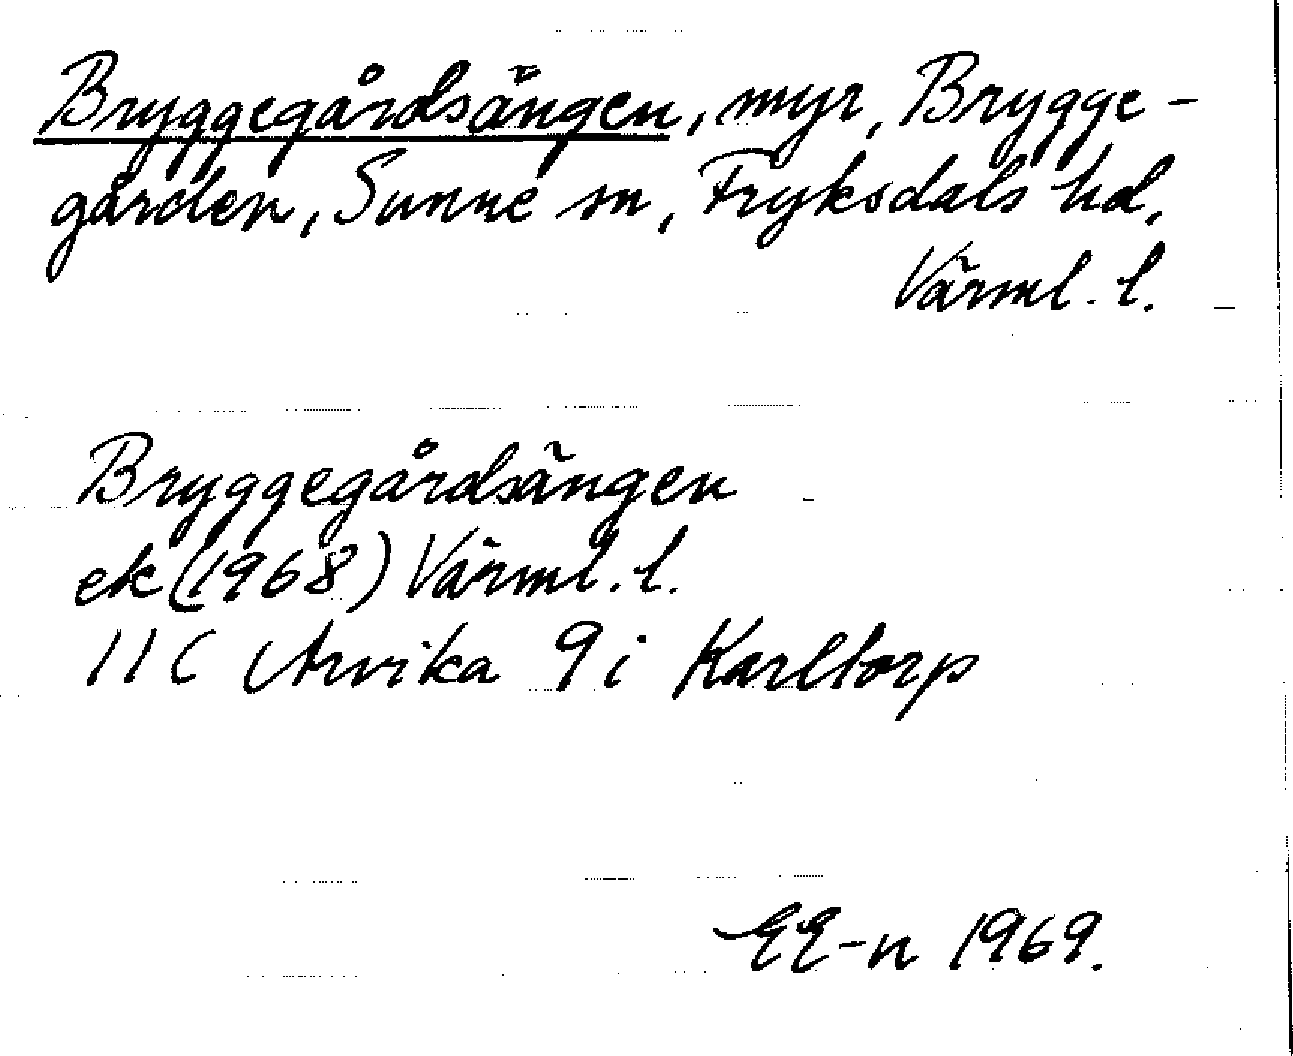 Bryggegårdsängen, myr, Brygge-
gården, Sunne sn, Fryksdals hd,
Värml. l.
Bryggegårdsängen
ek (1968) Värml. l.
11C Arvika 9i Karltorp
EE-n 1969.